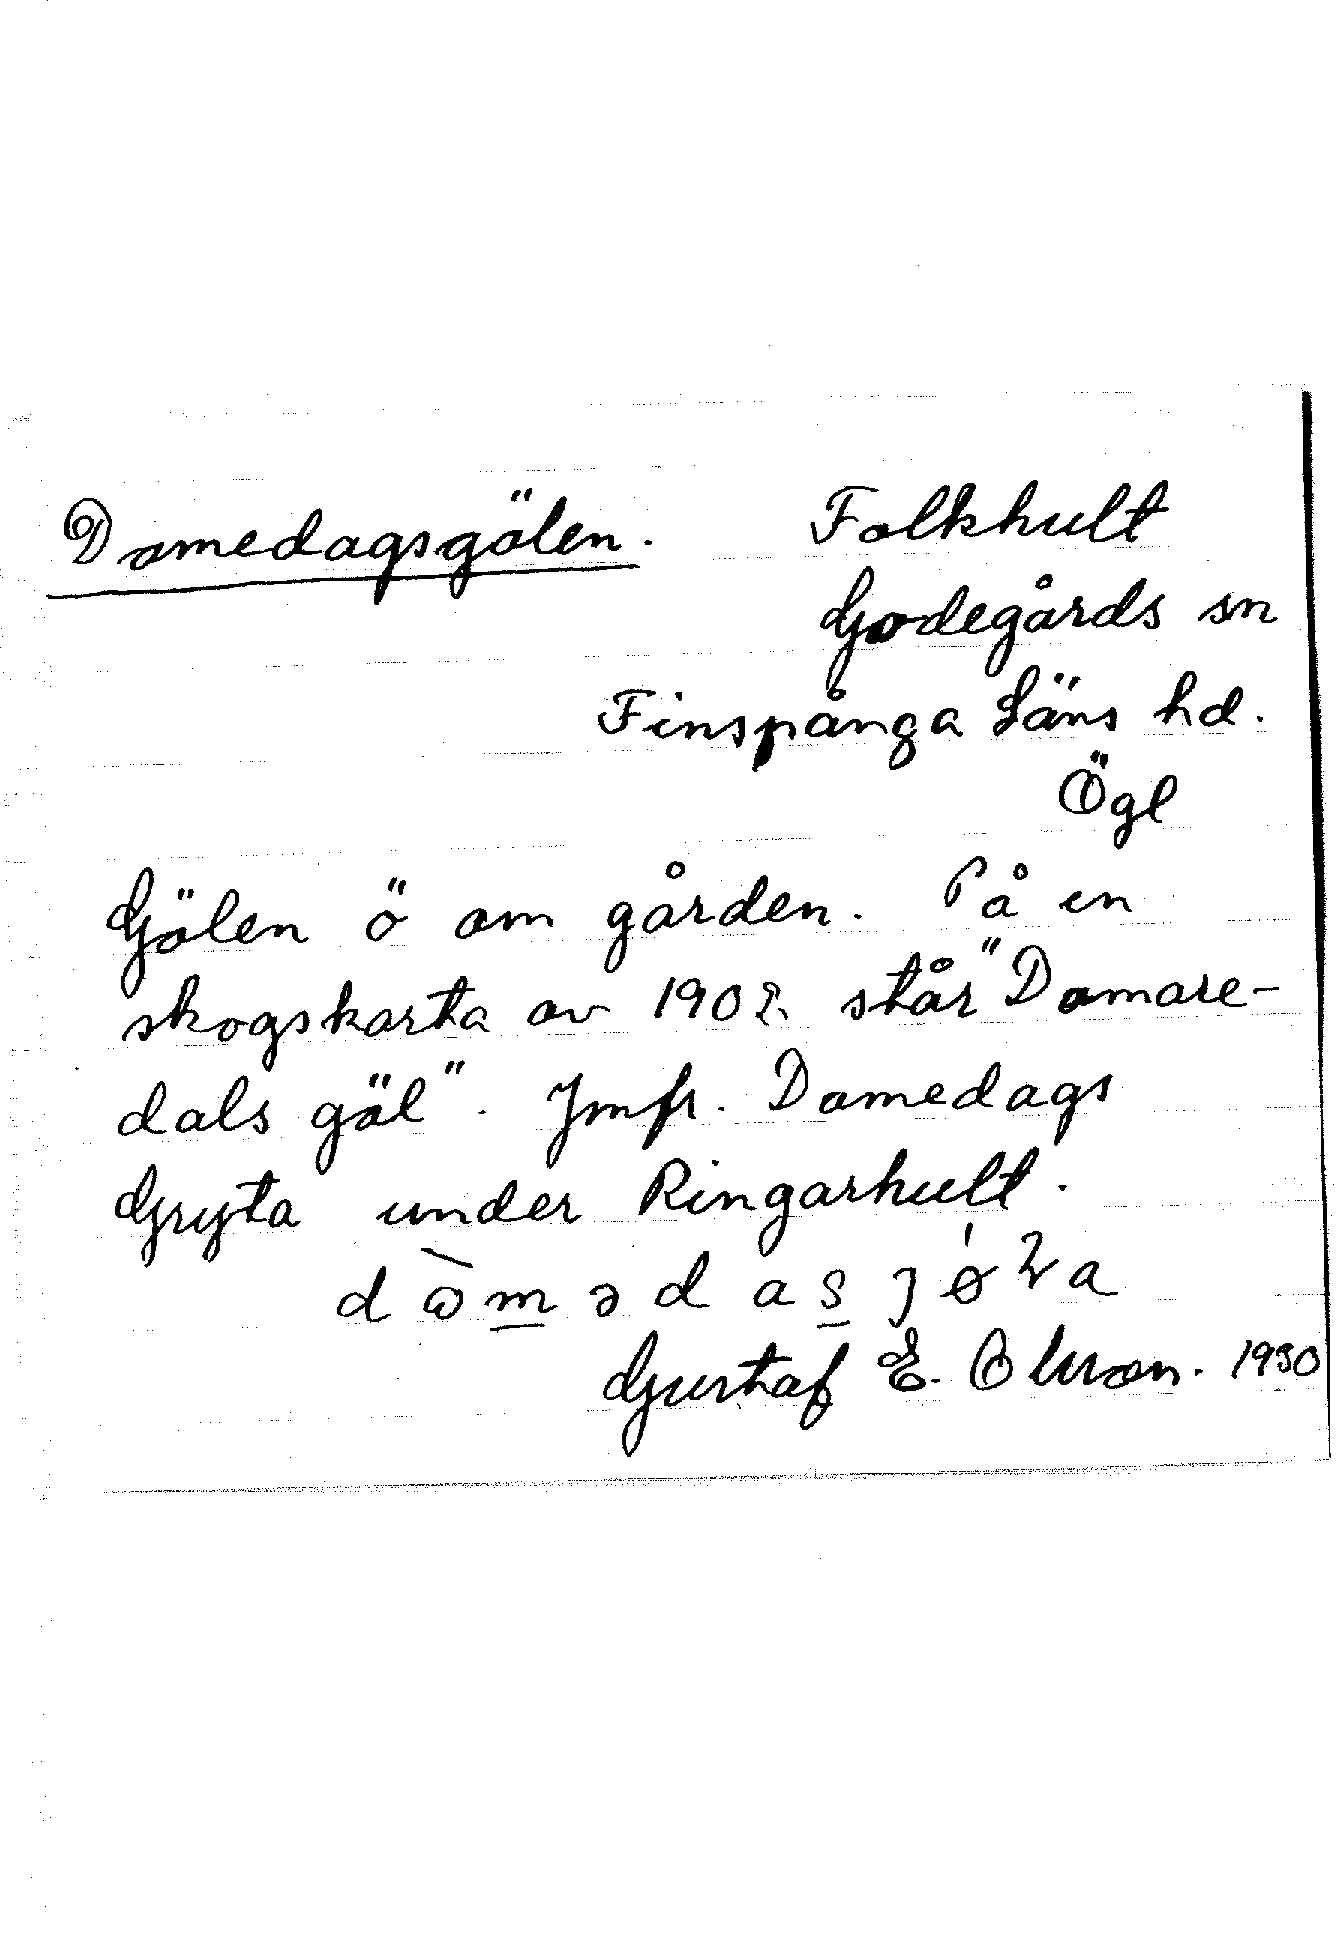 Domedagsgölen. Folkhult
Godegårds sn
Finspånga Läns hd.
Ögl
Gölen ö om gården. På en
skogskarta av 1902 står "Domare-
dals göl". Jmfr. Domedags
Gryta under Ringarhult.
Gustaf E. Olsson. 1930